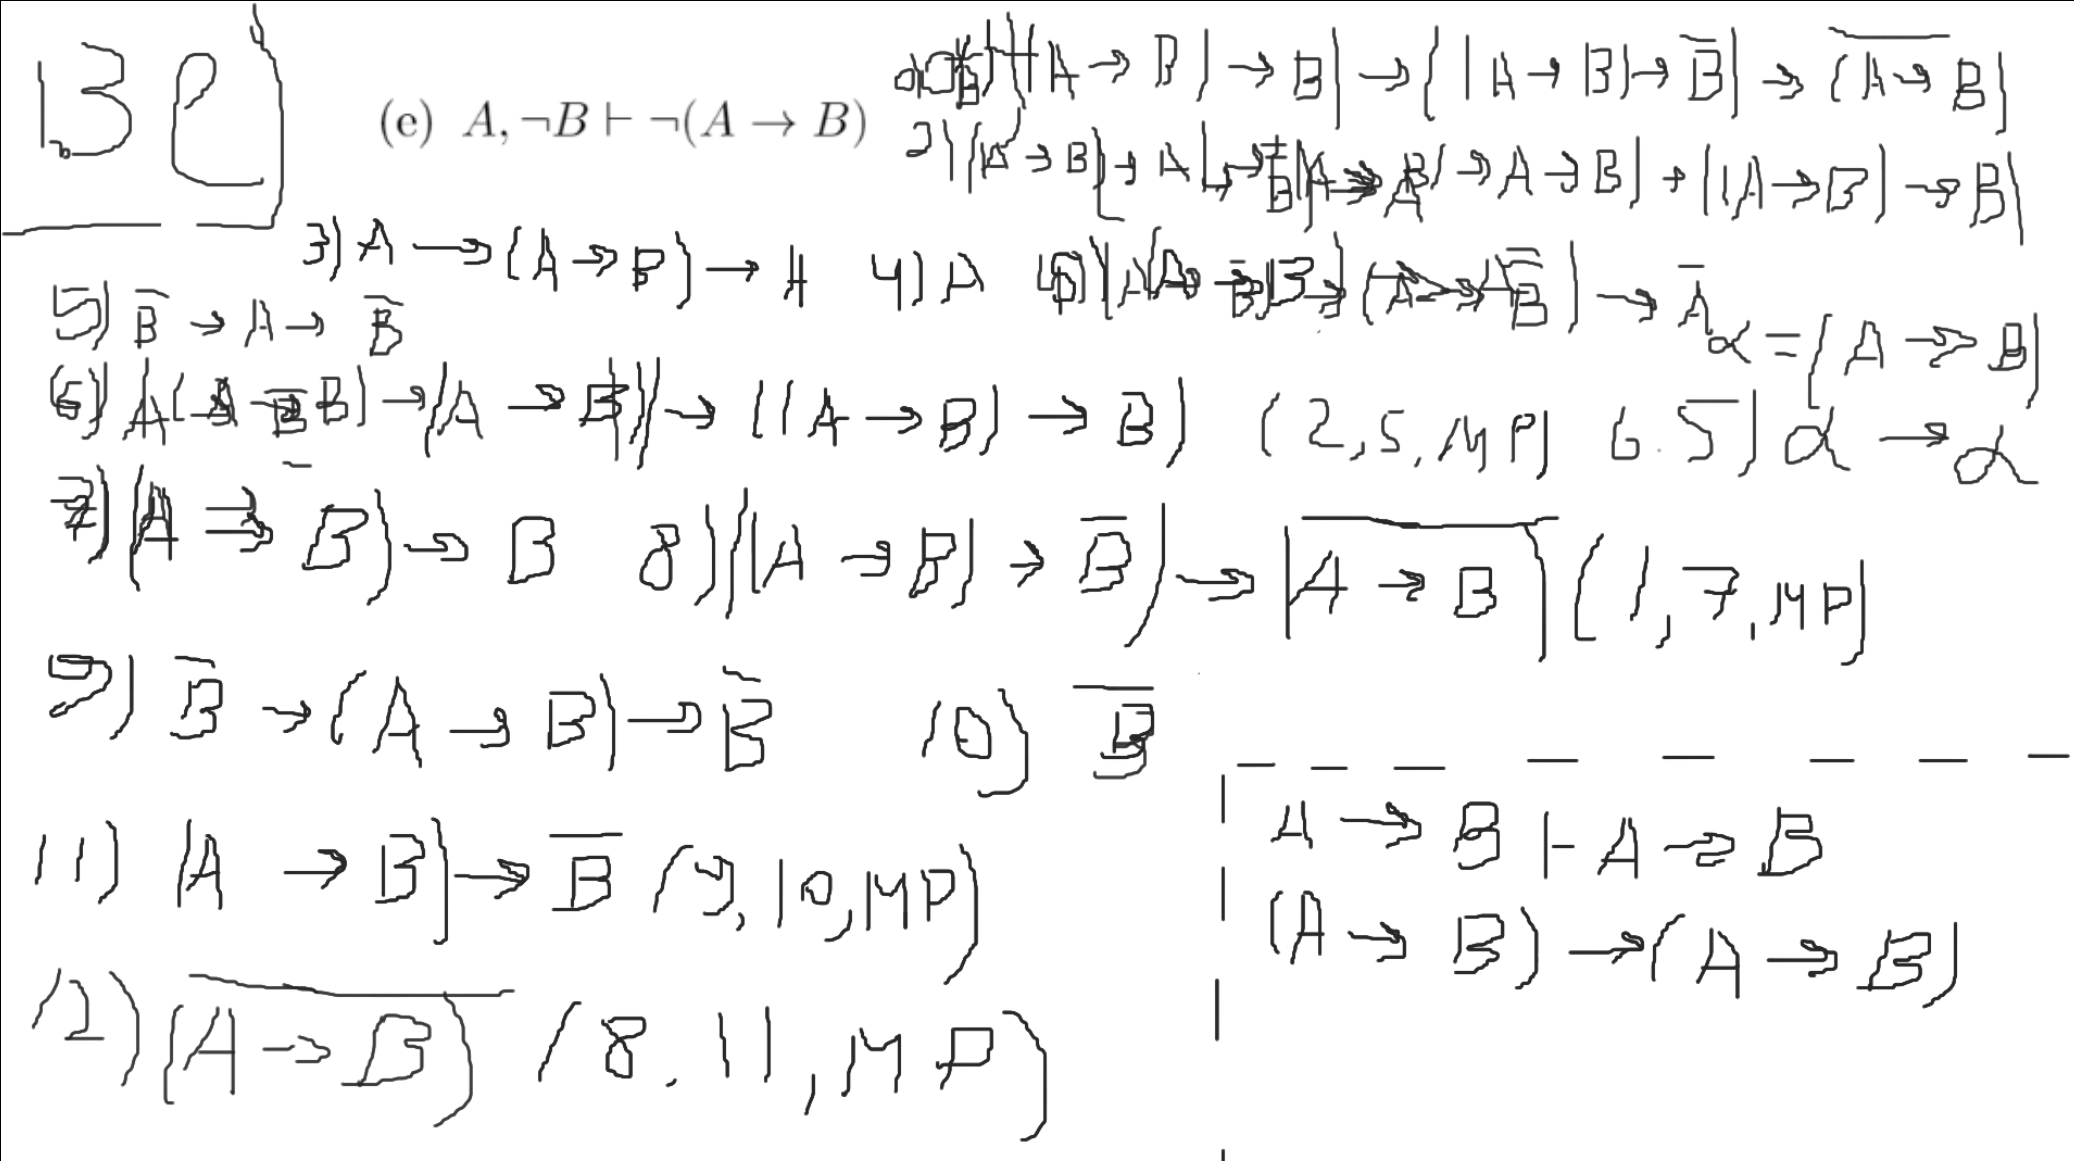 13 e)
(e) A, ¬B ⊢ ¬(A → B)
((A → B) → B) → ((A → B) → B̅) → \overline{(A → B)}
2) ((A → B) → A) → (A → B) → ((A → B) → B)
3) A → (A → B) → A 4) A
5) B̅ → A → B̅
α = (A → B)
6) ((A → B) → (A → B)) → ((A → B) → B) (2,5,MP) 6.5) α → α
7) (A → B) → B 8) ((A → B) → B̅) → \overline{(A → B)} (1,7,MP)
9) B̅ → (A → B) → B̅ 10) B̅
11) (A → B) → B̅ (9,10,MP)
12) \overline{(A → B)} (8,11,MP)
A → B ⊢ A → B
(A → B) → (A → B)